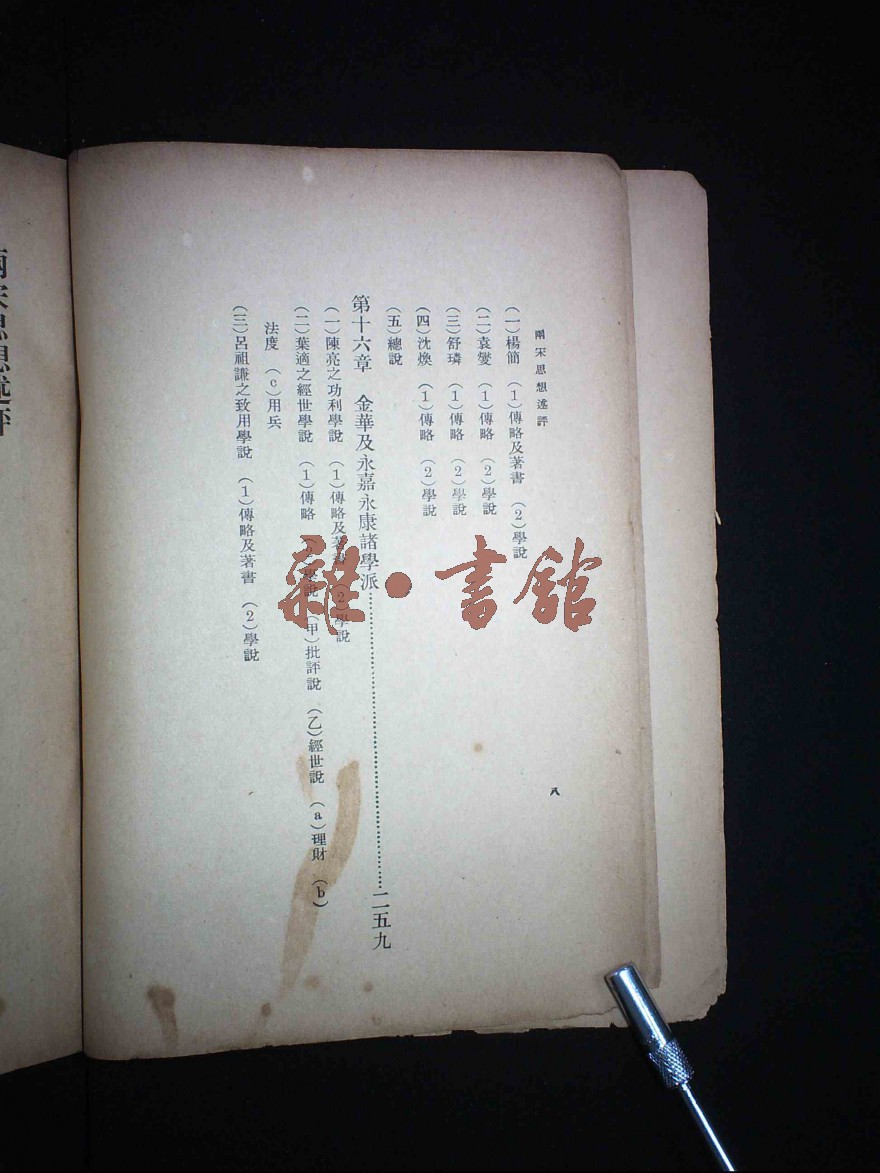 兩宋思想述評
八
(一)楊簡 (1)傳略及著書 (2)學說
(二)袁燮 (1)傳略 (2)學說
(三)舒璘 (1)傳略 (2)學說
(四)沈煥 (1)傳略 (2)學說
(五)總說
第十六章 金華及永嘉永康諸學派……二五九
(一)陳亮之功利學說 (1)傳略及著書 (2)學說
(二)葉適之經世學說 (1)傳略 學說 (甲)批評說 (乙)經世說 (a)理財 (b)
法度 (c)用兵
(三)呂祖謙之致用學說 (1)傳略及著書 (2)學說
兩宋思想述評
雜·書館